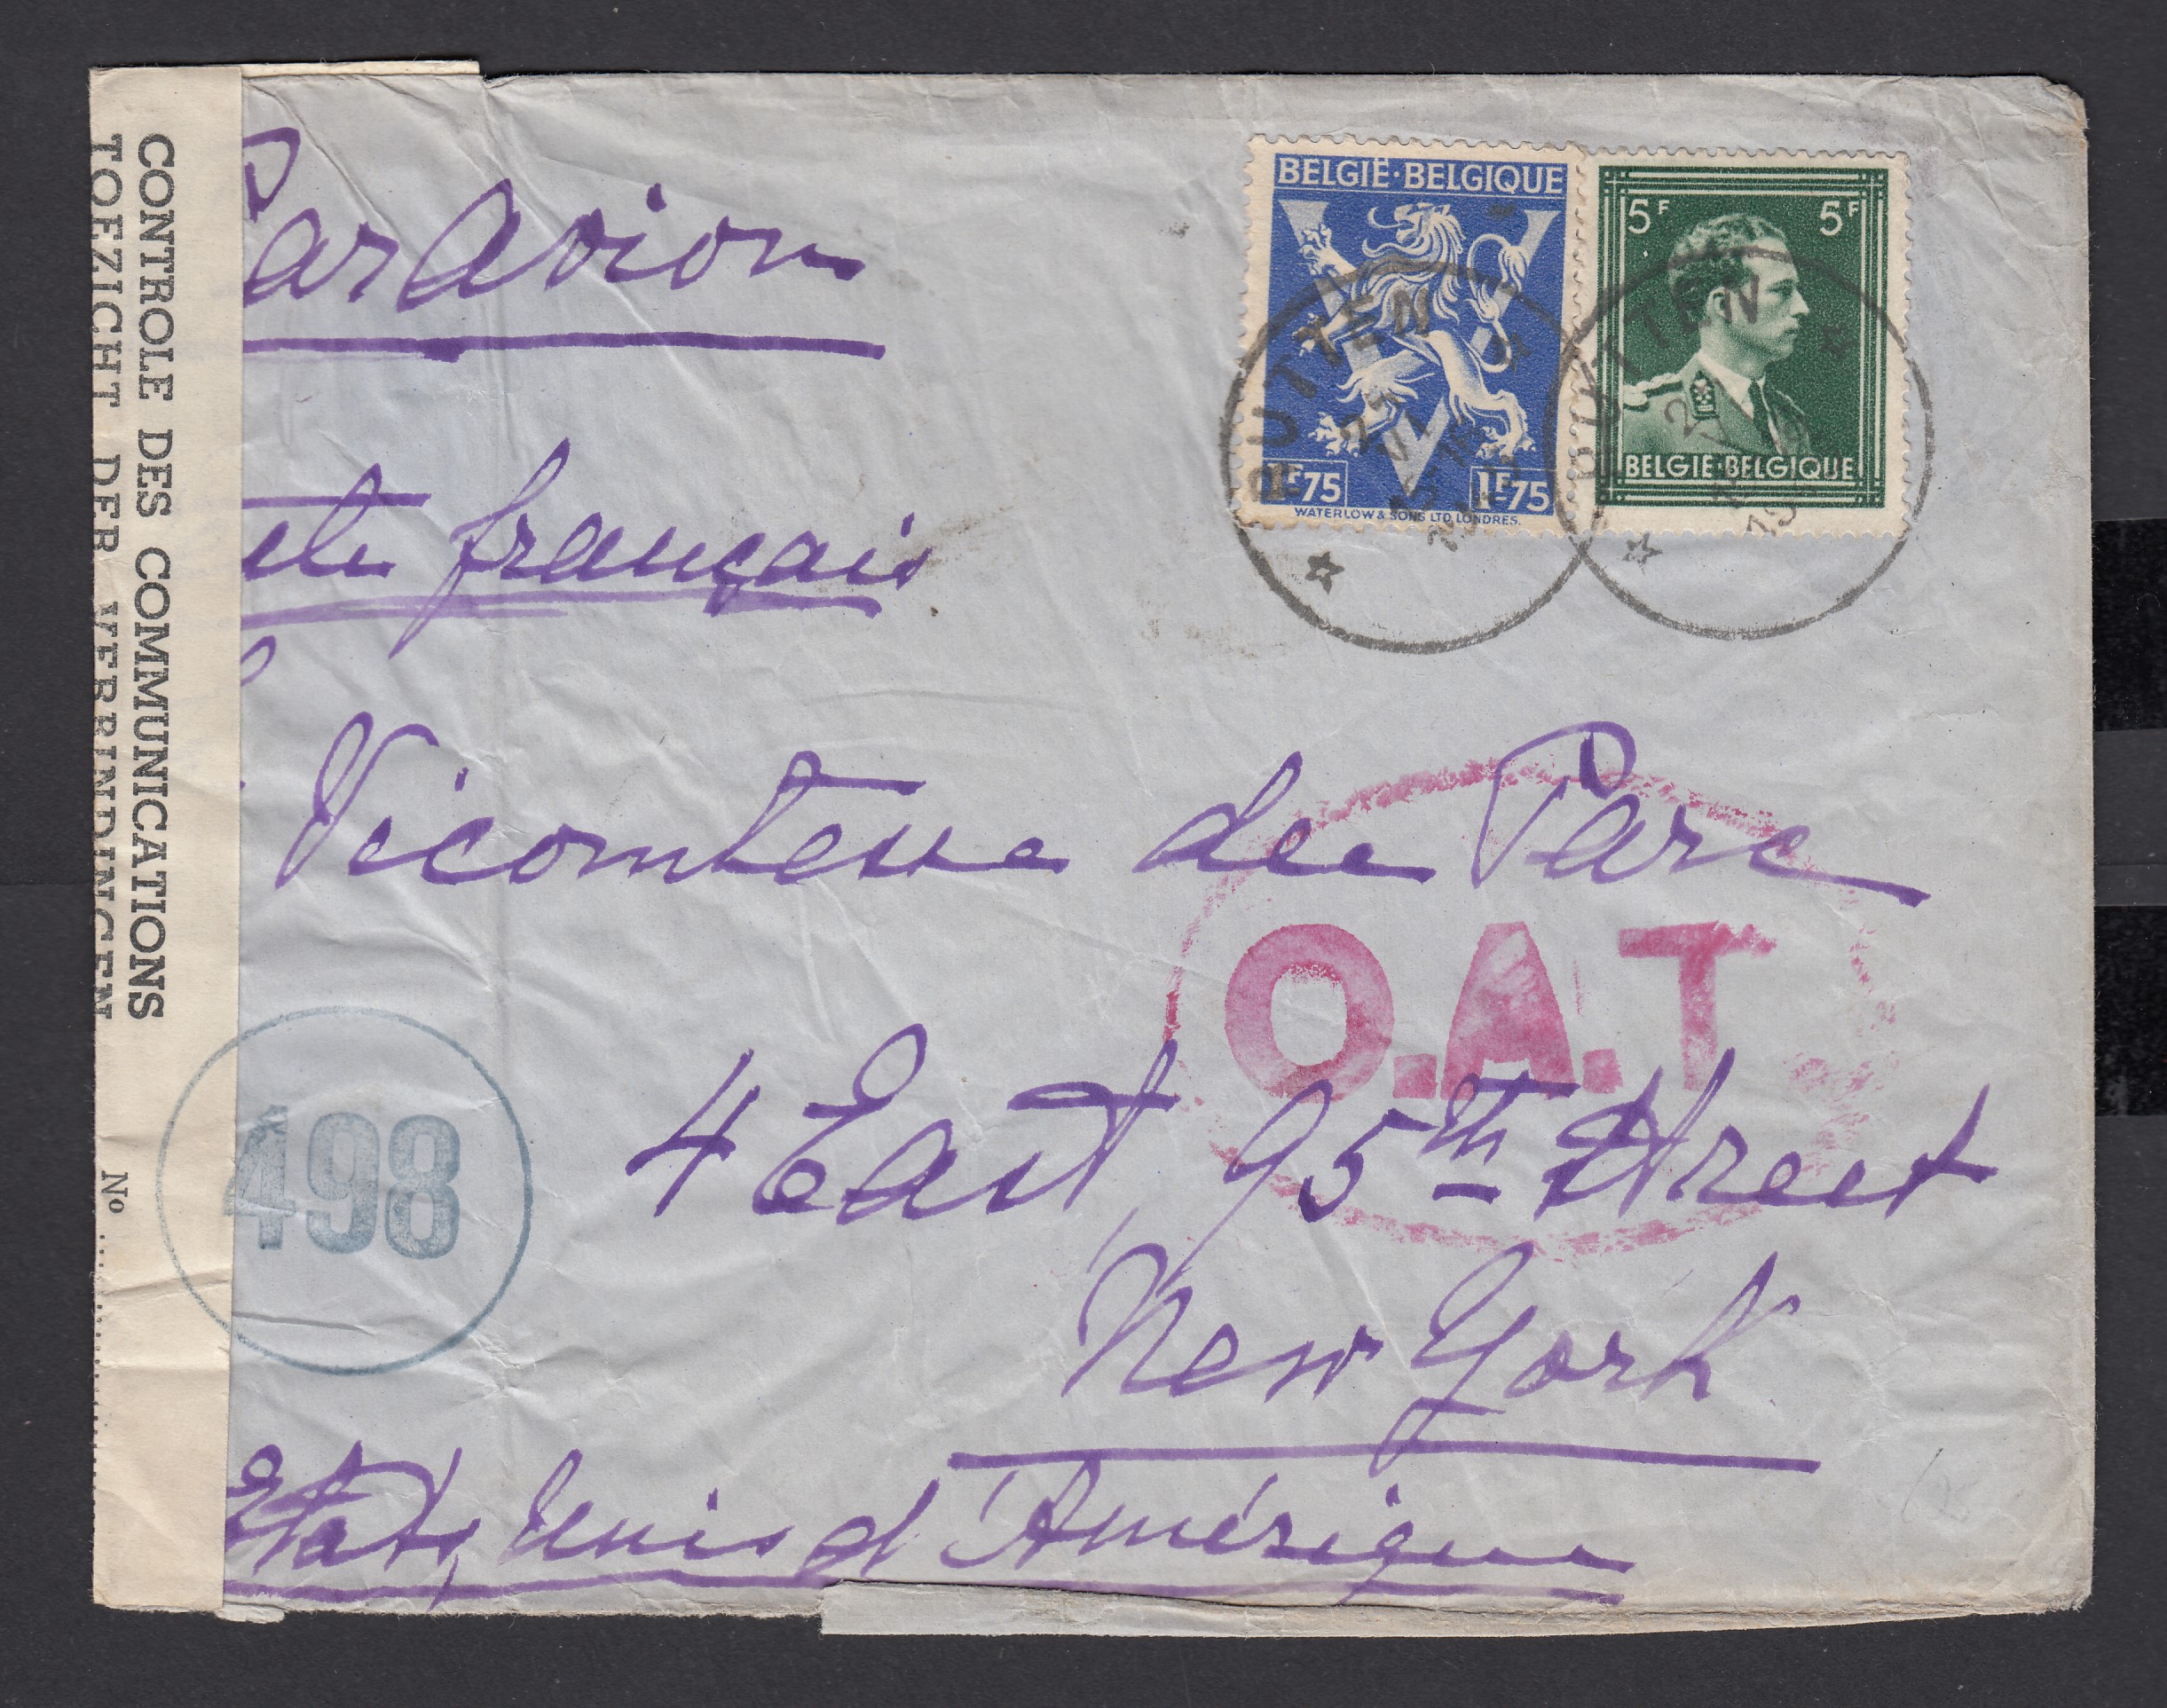 CONTROLE DES COMMUNICATIONS
TOEZICHT DER VERBINDINGEN
No
Par Avion
BELGIË·BELGIQUE
1F75 1F75
WATERLOW & SONS LTD LONDRES.
5F 5F
BELGIE·BELGIQUE
PUTTEN
PUTTEN
français
Vicomtesse de Parc
O.A.T
4 East 95th Street
New York
498
Etats Unis d'Amérique